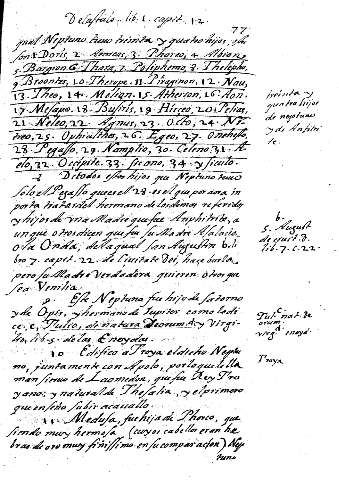 De lastolo. lib. 1. capit. 12.
77
qual Neptuno tuvo treinta y quatro hijos, que
son 1 Doris, 2. Amicus, 3. Phorco, 4. Albion,
5. Bargion. 6. Thara, 7. Poliphemo, 8. Thelepho,
9. Broontes, 10. 11. 12. Nau,
13. Theo, 14. Melion. 15. 16.
17. Mesapo. 18. Busiris, 19. 20. Pelias,
21. Neleo, 22. 23. Octo, 24.
25. Ophialthes, 26. Egeo, 27. Onchesto,
28. Pegasso, 29. Namplio, 30. Celeno, 31. A-
elo, 32. Occipite. 33. Sicano, 34. y Siculo.
De todos estos hijos que Neptuno tuvo
solo el Pegasso que es el 28. es el que por ahora im
porta tratar del hermano de
y hijos de una Madre que fue Amphitrite, a
unque otros dicen que fu su Madre Salacia,
o la Onda, de la qual San Augustin li-
bro 7. capit. 22. de Civitate Dei, hace burla,
pero su Madre verdadera quieren otros que
sea Venilia.
9. Este Neptuno fue hijo de Saturno
y de Opis, y hermano de Jupiter como lo di-
ce, Tulio, de natura Deorum, y Virgi-
lio, lib. 5. de las Eneydas.
10 Edifico a Troya el dicho Neptu
no, juntamente con Apolo, por lo que le lla
man siervo de Laomedon, que fue Rey Tro
yano; y natural de Thesalia, y el primero
que enseño subir a cavallo.
11. Medusa, fue hija de Phorco, que
siendo muy hermosa (cuyos cabellos eran he
bras de oro muy finissimo en su comparacion) Nep
tuno
treinta y
quatro hijos
de neptuno
y de Anfitri
te.
b.
S. August.
de civit. D.
lib. 7. c. 22.
Tul. nat. de
orum
virg. eneyd.
Troya